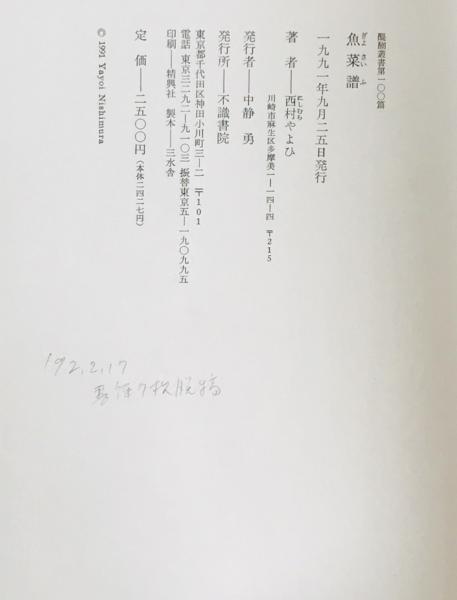 醍醐叢書第一〇〇篇
魚菜譜
ぎよさいふ
一九九一年九月二五日発行
著者――西村やよひ
にしむら
川崎市麻生区多摩美一―一四―四 〒215
発行者――中静勇
発行所――不識書院
東京都千代田区神田小川町三―二 〒101
電話 東京三二九二―九一〇三 振替東京五―一九〇九九五
印刷――精興社 製本――三水舎
定価――二五〇〇円(本体二四二七円)
© 1991 Yayoi Nishimura
'92.2.17